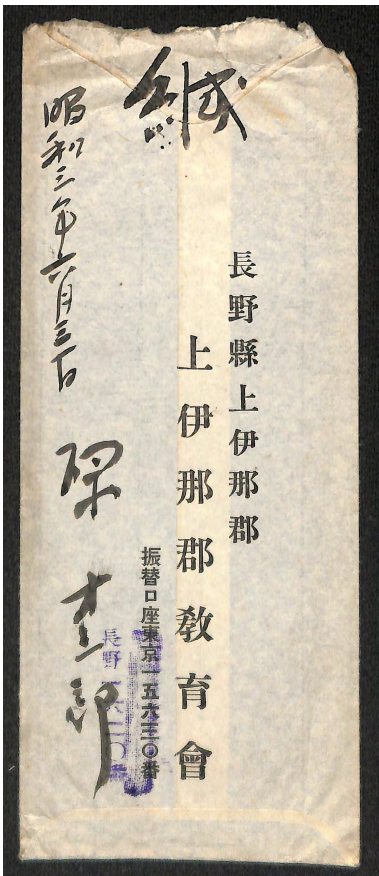 緘
長野縣上伊那郡
上伊那郡教育會
振替口座東京一五六三〇番
長野
昭和三年六月三日